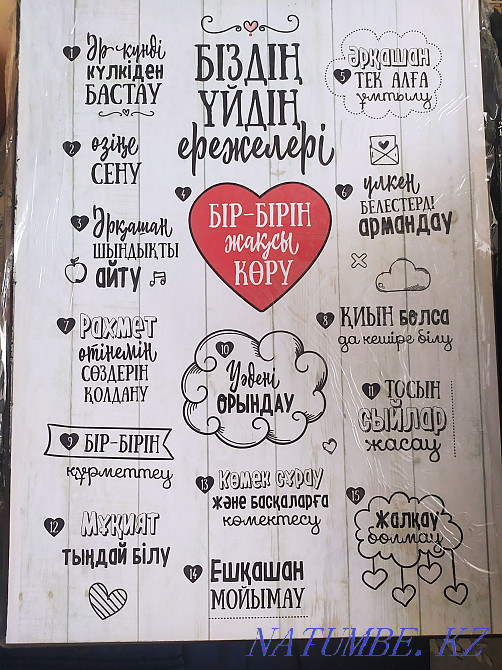 БІЗДІҢ
ҮЙДІҢ
ережелері
1 Әр күнді
күлкіден
БАСТАУ
2 өзіңе
СЕНУ
3 Әрқашан
ШЫНДЫҚТЫ
айту
4 БІР-БІРІН
жақсы
КӨРУ
5 Әрқашан
ТЕК АЛҒА
ұмтылу
6 үлкен
БЕЛЕСТЕРДІ
армандау
7 Рахмет
өтінемін
СӨЗДЕРІН
ҚОЛДАНУ
8 ҚИЫН болса
да кешіре білу
9 БІР-БІРІН
құрметтеу
10 Уәдені
ОРЫНДАУ
11 ТОСЫН
СЫЙЛАР
жасау
12 Мұқият
тыңдай білу
13 Көмек сұрау
және басқаларға
көмектесу
14 Ешқашан
МОЙЫМАУ
15 Жалқау
болмау
NATUMBE.KZ